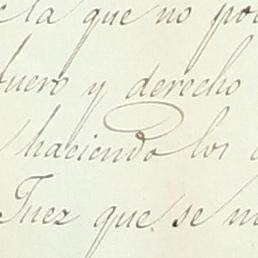 la que no
fuero y derecho
haciendo los
Juez que se